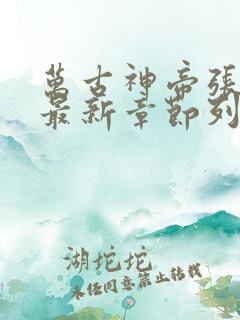 萬古神帝張
最新章節列
湖坨坨
未经同意禁止转载